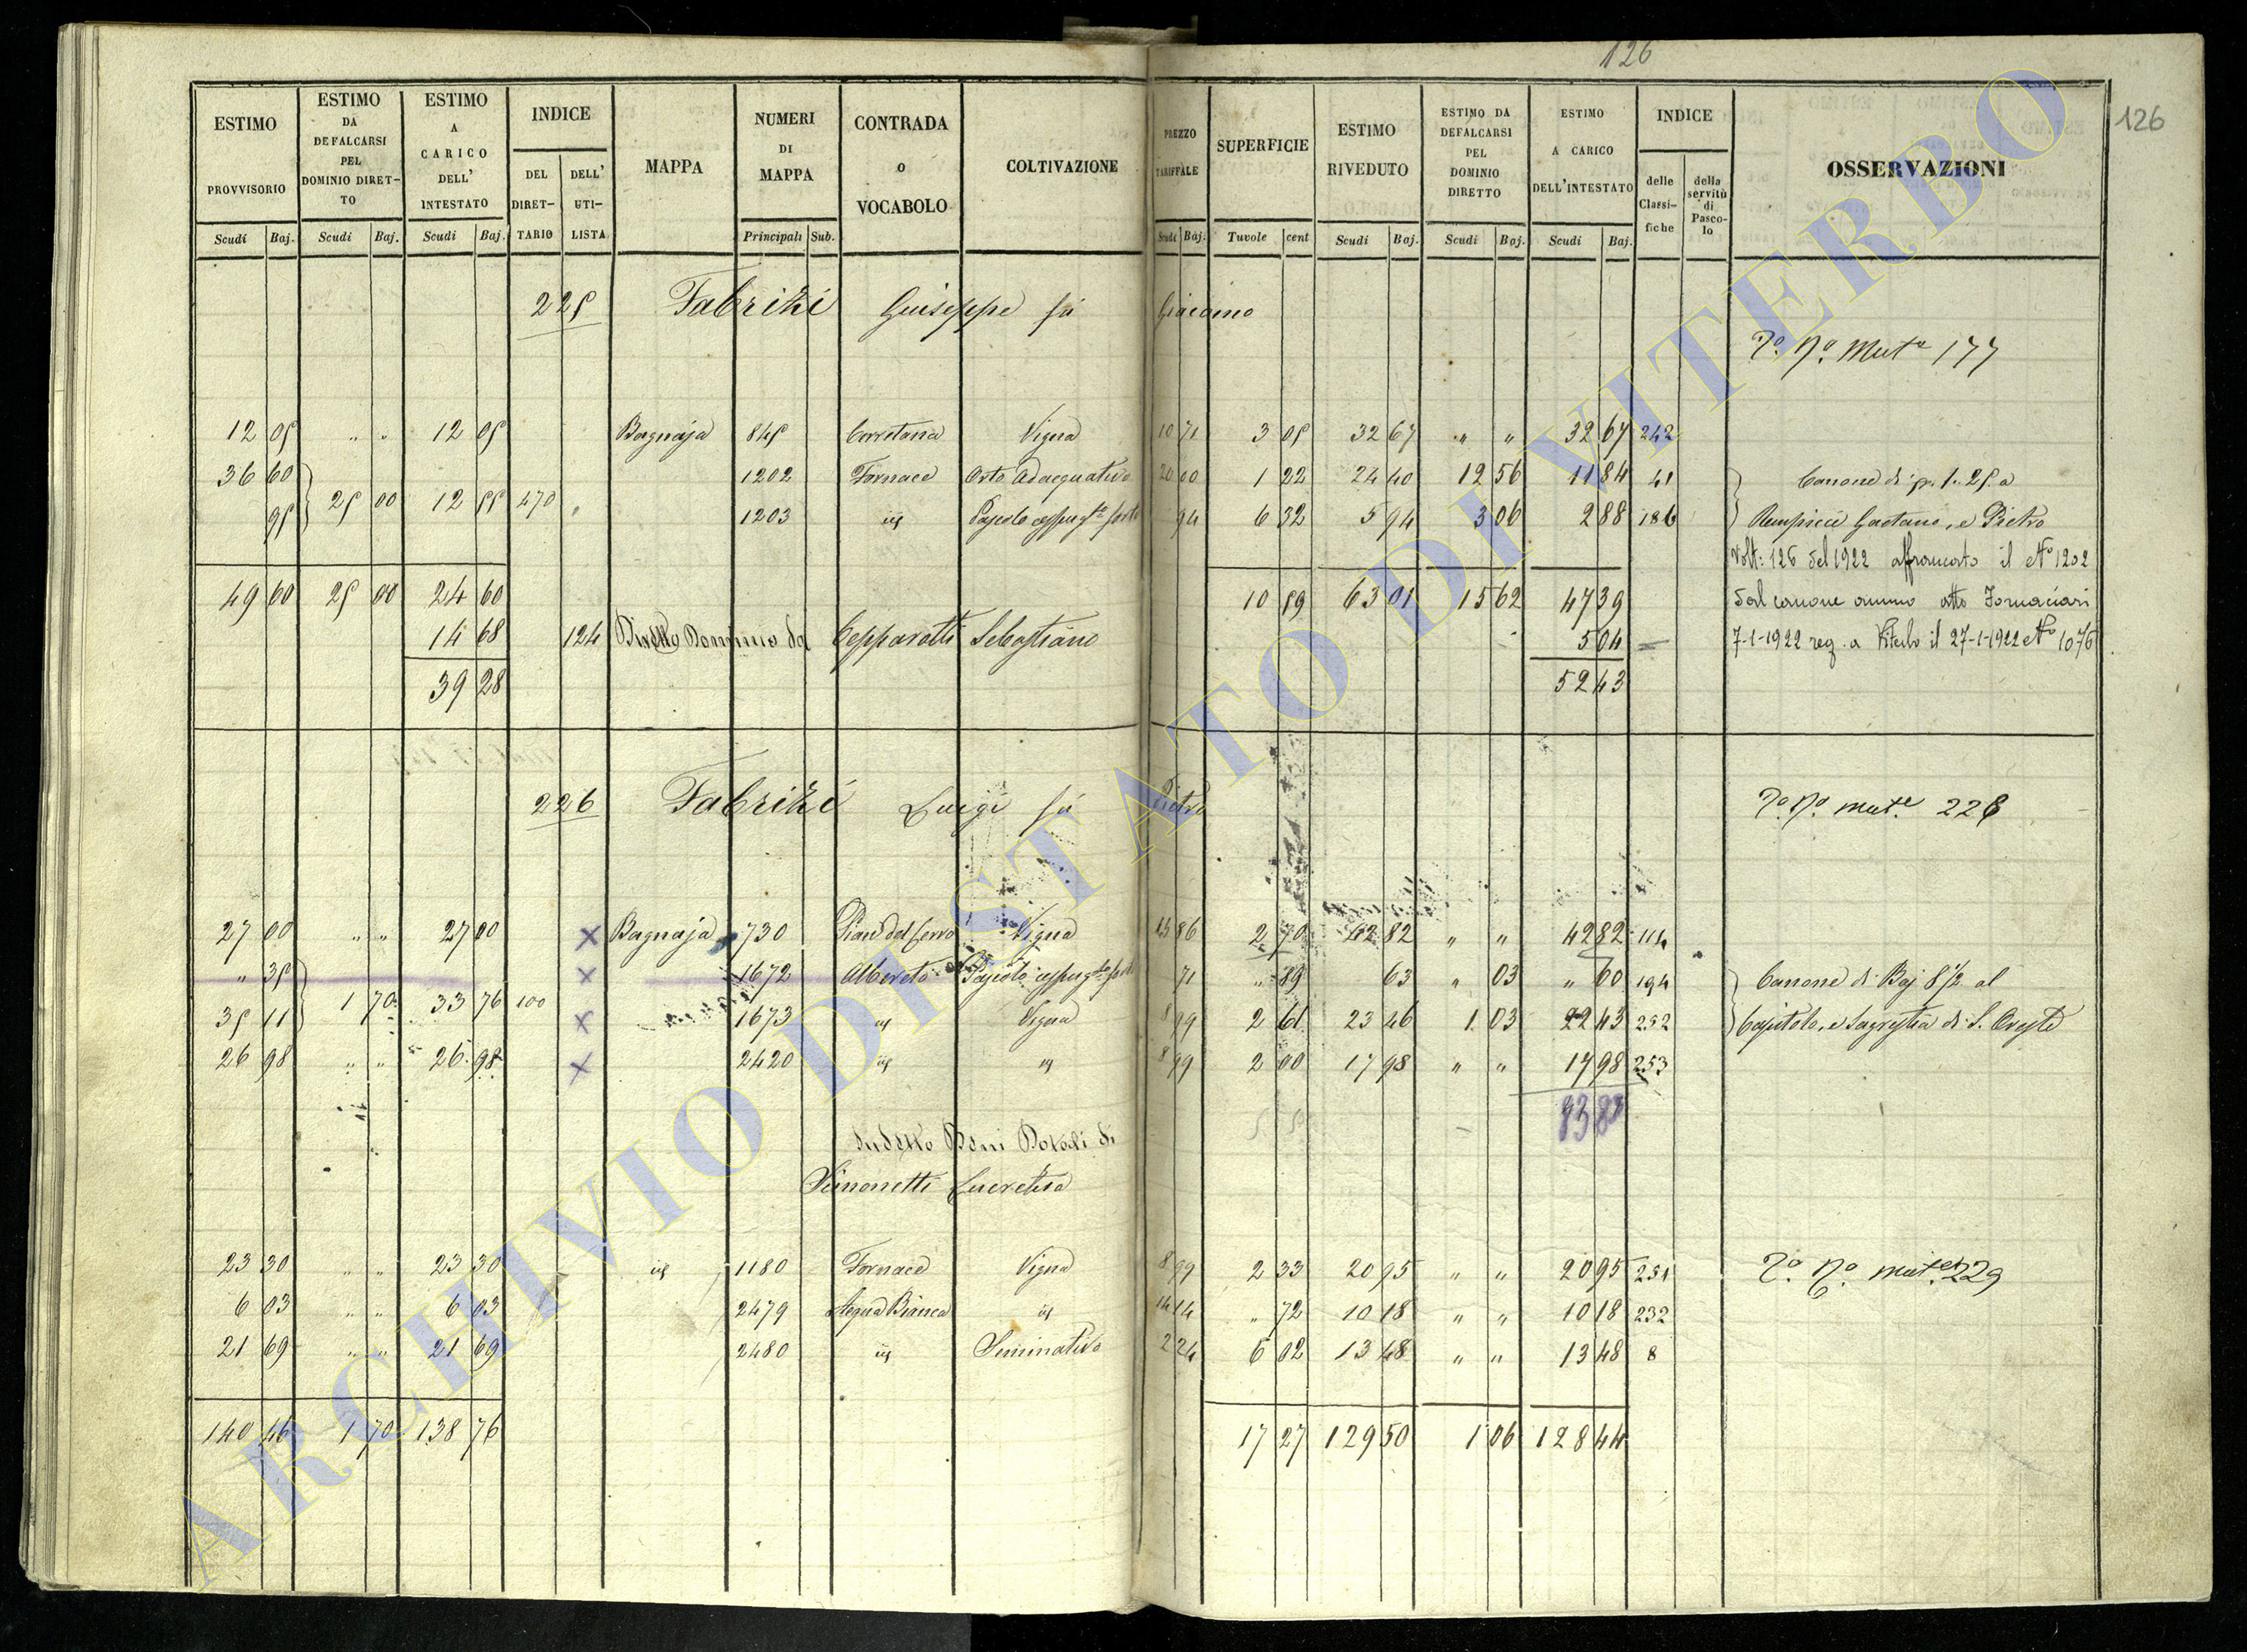 126
126
ESTIMO PROVVISORIO
ESTIMO DA DEFALCARSI PEL DOMINIO DIRET-TO
ESTIMO A CARICO DELL' INTESTATO
INDICE
DEL DIRET-TARIO
DELL' UTI-LISTA
MAPPA
NUMERI DI MAPPA
CONTRADA o VOCABOLO
COLTIVAZIONE
PREZZO TARIFFALE
SUPERFICIE
ESTIMO RIVEDUTO
ESTIMO DA DEFALCARSI PEL DOMINIO DIRETTO
ESTIMO A CARICO DELL'INTESTATO
INDICE
delle Classi-fiche
della servitù di Pasco-lo
OSSERVAZIONI
Scudi Baj. Scudi Baj. Scudi Baj. Principali Sub. Scudi Baj. Tavole cent Scudi Baj. Scudi Baj. Scudi Baj.
225 Fabrizi Giuseppe fu Giacomo
177
12 05 " " 12 05 Bagnaja 845 Corretana Vigna 10 71 3 05 32 67 " " 32 67 242
36 60 1202 Fornace Orto Adacquativo 20 00 1 22 24 40 12 56 11 84 41 Canone di 1.25 a
95 25 00 12 55 470 " 1203 94 6 32 5 94 3 06 2 88 186 Gaetano, e Pietro
Volt: 126 del 1922 affrancato il N° 1202
49 60 25 00 24 60 10 59 63 01 15 62 47 39 dal canone annuo atto Fornaciari
14 68 124 Diretto Dominio da Cepparotti Sebastiano 5 04 7-1-1922 reg. a Viterbo il 27-1-1922 N° 1076
39 28 52 43
226 Fabrizi Luigi fu Pietro
228
27 00 " " 27 00 x Bagnaja 730 Pian del Cerro Vigna 15 86 2 70 42 82 " " 42 82 114
" 35 x 1672 Albereto 71 " 89 63 " 03 " 60 194 Canone di Baj 8 1/2 al
35 11 1 70 33 76 100 x 1673 Vigna 8 99 2 61 23 46 1 03 22 43 252 Capitolo, e Sagrestia di S. Oreste
26 98 " " 26 98 x 2420 8 99 2 00 17 98 " " 17 98 253
83 83
Sudetto Beni Dotali di
Simonetti Lucretia
23 30 " " 23 30 1180 Fornace Vigna 8 99 2 33 20 95 " " 20 95 251 229
6 03 " " 6 03 2479 Acqua Bianca 14 14 " 72 10 18 " " 10 18 232
21 69 " " 21 69 2480 Seminativo 2 24 6 02 13 48 " " 13 48 8
140 46 1 70 138 76 17 27 129 50 1 06 128 44
ARCHIVIO DI STATO DI VITERBO